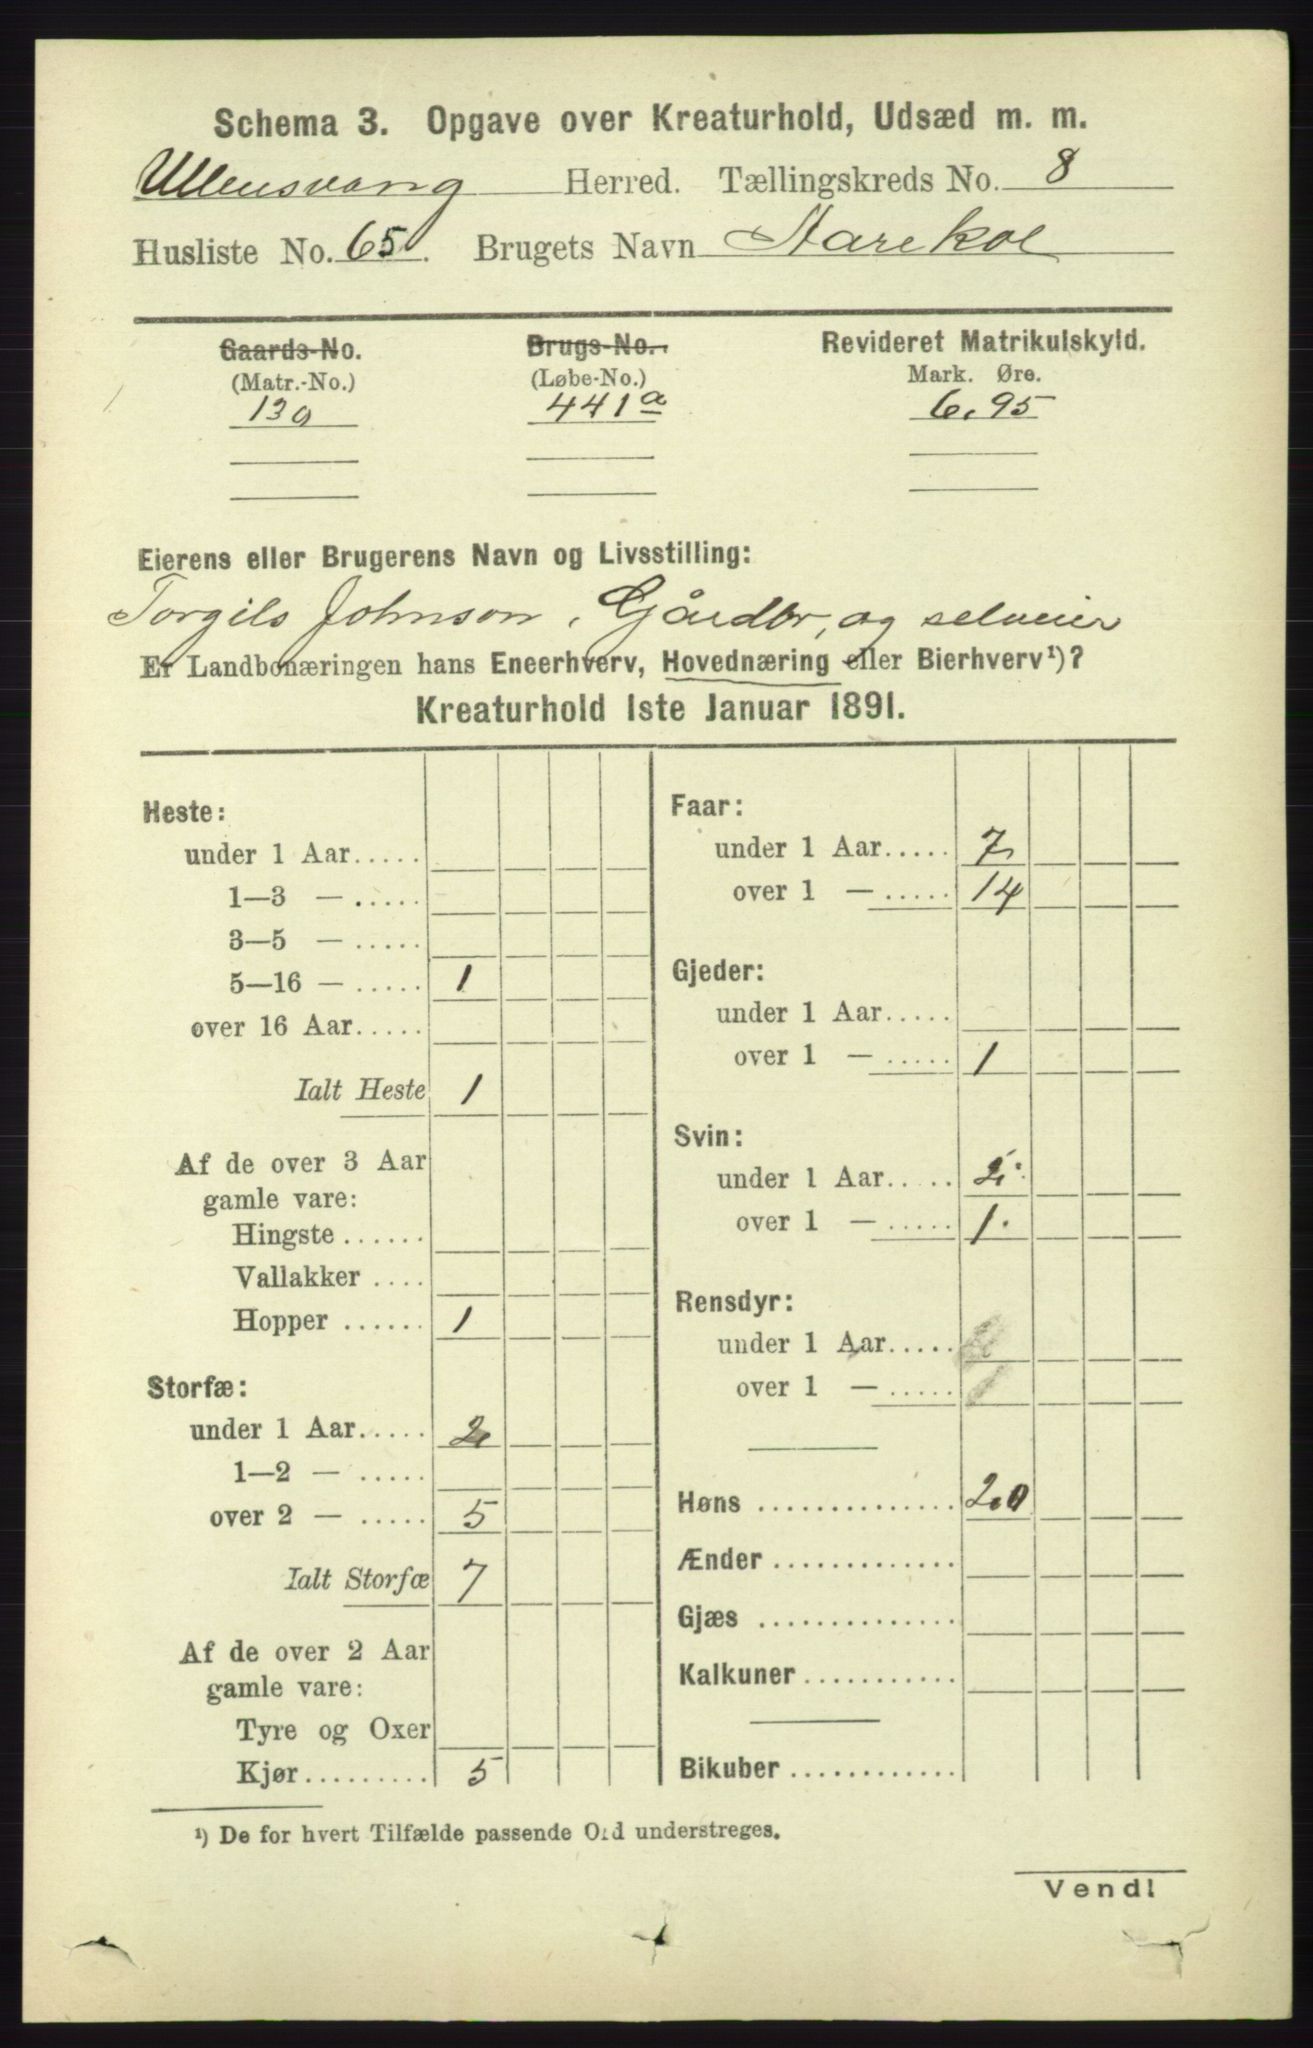 Schema 3. Opgave over Kreaturhold, Udsæd m. m.
Ullensvang Herred. Tællingskreds No. 8
Husliste No. 65. Brugets Navn
Gaards-No. Brugs-No. Revideret Matrikulskyld.
(Matr.-No.) (Løbe-No.) Mark. Øre.
441a 6,95
Eierens eller Brugerens Navn og Livsstilling:
Torgils Johnson, Gårdbr, og selveier
Er Landbonæringen hans Eneerhverv, Hovednæring eller Bierhverv¹)?
Kreaturhold 1ste Januar 1891.
Heste:
under 1 Aar.....
1—3 — .....
3—5 — .....
5—16 — ..... 1
over 16 Aar.....
Ialt Heste 1
Af de over 3 Aar
gamle vare:
Hingste ......
Vallakker ....
Hopper ...... 1
Storfæ:
under 1 Aar..... 2
1—2 — .....
over 2 — ..... 5
Ialt Storfæ 7
Af de over 2 Aar
gamle vare:
Tyre og Oxer
Kjør......... 5
Faar:
under 1 Aar..... 7
over 1 — ..... 14
Gjeder:
under 1 Aar.....
over 1 — ..... 1
Svin:
under 1 Aar..... 2
over 1 — ..... 1.
Rensdyr:
under 1 Aar.....
over 1 — .....
Høns .............. 20
Ænder .............
Gjæs ..............
Kalkuner ...........
Bikuber ............
¹) De for hvert Tilfælde passende Ord understreges.
Vend!